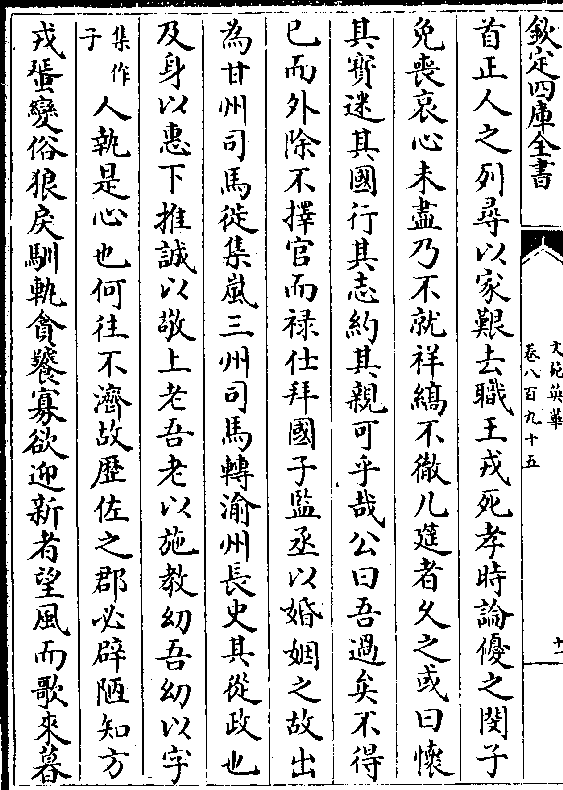 欽定四庫全書
文苑英華
卷八百九十五
十一
首正人之列尋以家艱去職王戎死孝時論優之閔子
免喪哀心未盡乃不就祥縞不徹几筵者久之或曰懷
其寳迷其國行其志約其親可乎哉公曰吾過矣不得
已而外除不擇官而禄仕拜國子監丞以婚姻之故出
為甘州司馬徙集嵐三州司馬轉渝州長史其從政也
及身以惠下推誠以敬上老吾老以施教幼吾幼以字
集作子
人執是心也何往不濟故歴佐之郡必辟陋知方
戎蜑變俗狼戾馴軌貪饕寡欲迎新者望風而歌來暮